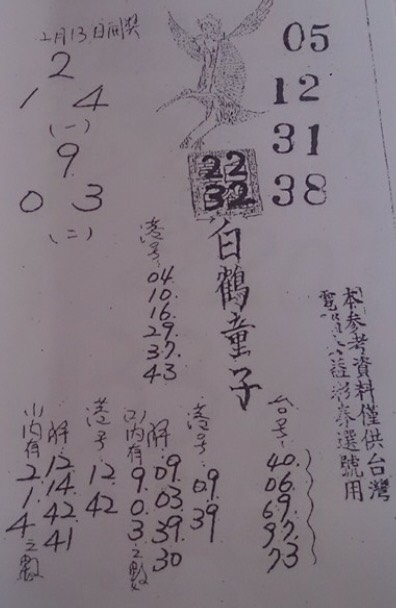 2月13日開獎
2
1 4
(一)
9
0 3
(二)
05
12
31
38
22
32
白鶴童子
港号:
04.
10.
16.
29.
37.
43
本參考資料僅供台灣
電腦公益彩券選號用
台号:
40.
06.
69.
97.
73
港号:
09.
39
解:
09.
03.
39.
30
(2)內有
9.
0.
3.之數
港号:
12.
42
解:
12.
14.
42.
41
(1)內有
2.
1.
4之數